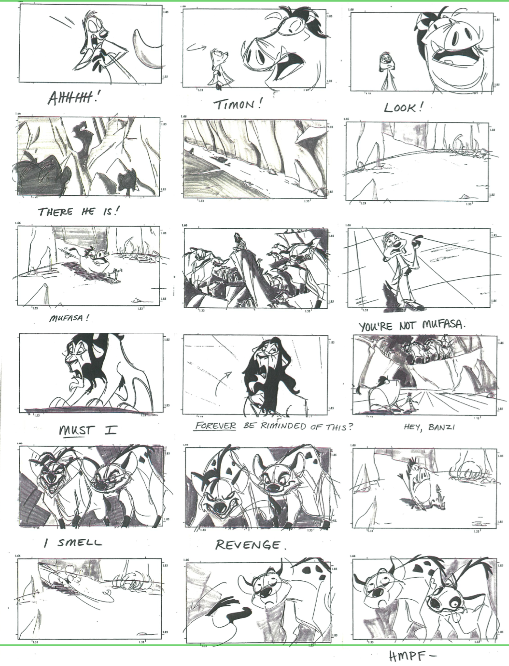 AHHHHH!
TIMON!
LOOK!
THERE HE IS!
MUFASA!
YOU'RE NOT MUFASA.
MUST I
FOREVER BE RIMINDED OF THIS?
HEY, BANZI
I SMELL
REVENGE.
HMPF-